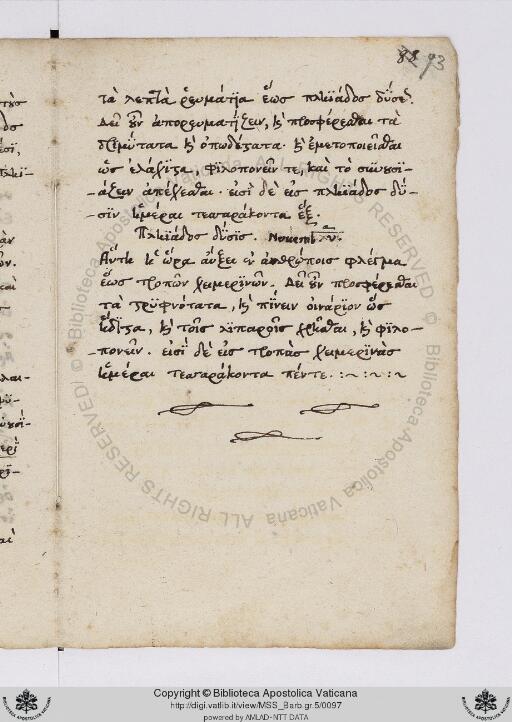 88 93
τὰ λεπτὰ ῥευμάτια ἕως πλειάδος δύσε.
Δεῖ οὖν ἀπορευματίζειν, καὶ προσφέρεσθαι τὰ
δριμύτατα καὶ ὀπωδέστατα. καὶ ἐμετοποιεῖσθαι
ὡς ἐλάχιστα, φιλοπονεῖν τε, καὶ τὸ συνουσι-
-άζειν ἀπέχεσθαι. εἰσὶ δὲ εἰς πλειάδος δύ-
σιν ἡμέραι τεσσαράκοντα ἕξ.
Πλειάδος δύσις.
Αὕτη ἡ ὥρα αὔξει ἐν ἀνθρώποις φλέγμα
ἕως τροπῶν χειμερινῶν. Δεῖ οὖν προσφέρεσθαι
τὰ στρυφνότατα, καὶ πίνειν οἰνάριον ὡς
ἥδιστα, καὶ τοῖς λιπαροῖς χρῆσθαι, καὶ φιλο-
-πονεῖν. εἰσὶ δὲ εἰς τροπὰς χειμερινὰς
ἡμέραι τεσσαράκοντα πέντε.
Copyright © Biblioteca Apostolica Vaticana
http://digi.vatlib.it/view/MSS_Barb.gr.5/0097
powered by AMLAD-NTT DATA